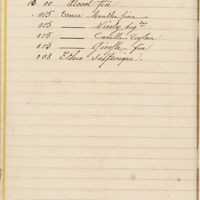 10 00 Alcool fin
. 015 Essence Menthe fine
015 —— Néroly big
015 —— Canelle Ceylan
015 —— Girofle fin
008 Ether Sulfurique.